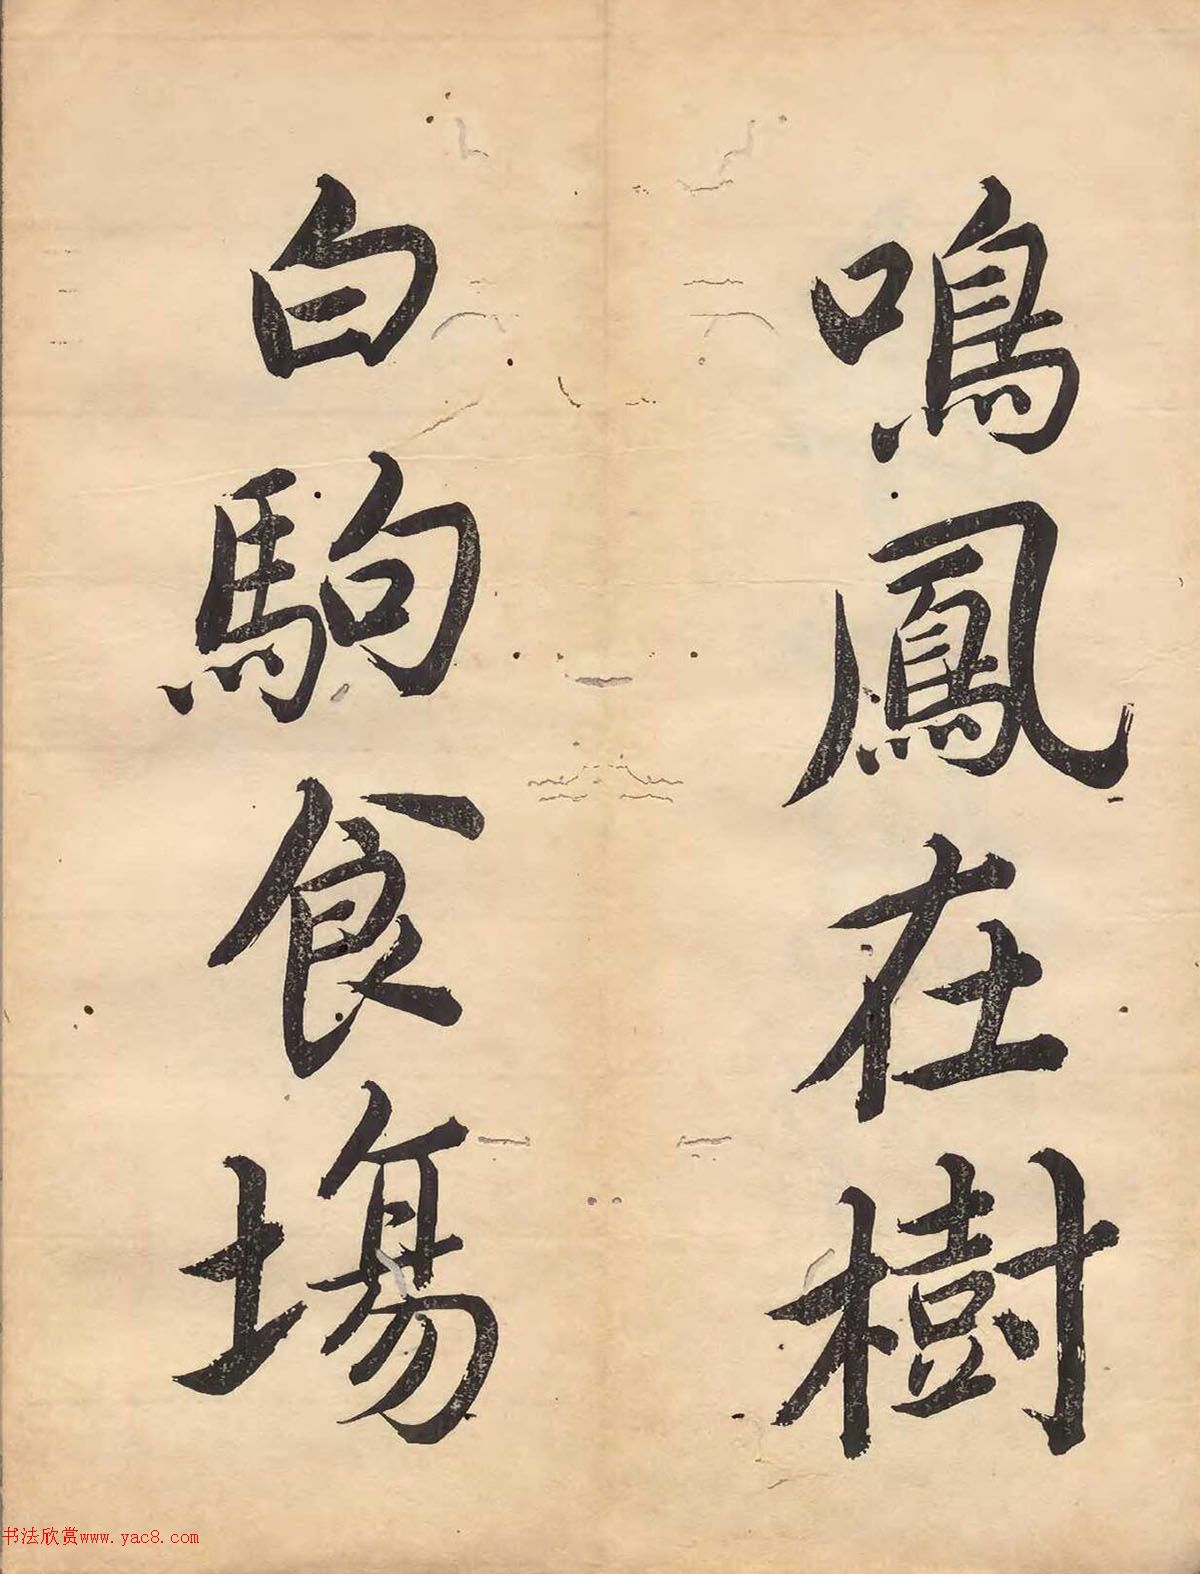 鳴鳳在樹
白駒食塲
书法欣赏www.yac8.com